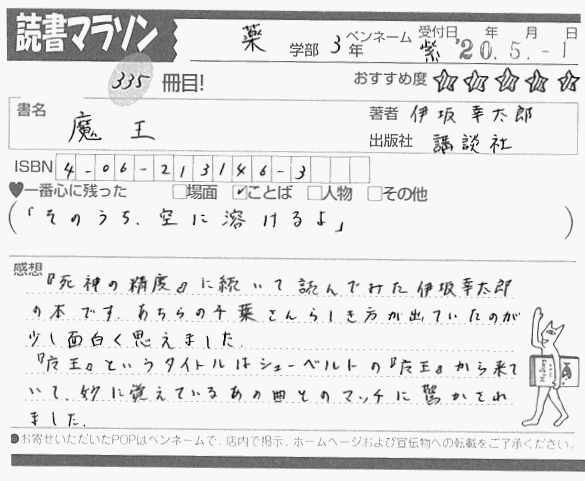 読書マラソン
薬 学部 3年 ペンネーム 紫 受付日 年 月 日 '20.5.-1
335 冊目!
おすすめ度 ☆☆☆☆☆
書名 魔王
著者 伊坂幸太郎
出版社 講談社
ISBN 4-06-213146-3
♥一番心に残った □場面 ☑ことば □人物 □その他
(「そのうち、空に溶けるよ」)
感想
『死神の精度』に続いて読んでみた伊坂幸太郎
の本です。あちらの千葉さんらしき方が出ていたのが
少し面白く思えました。
『魔王』というタイトルはシューベルトの『魔王』から来て
いて、妙に覚えているあの曲とのマッチに驚かされ
ました。
●お寄せいただいたPOPはペンネームで、店内で掲示、ホームページおよび宣伝物への転載をご了承ください。